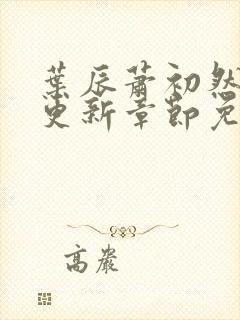 葉辰蕭初然
更新章節免
高嚴